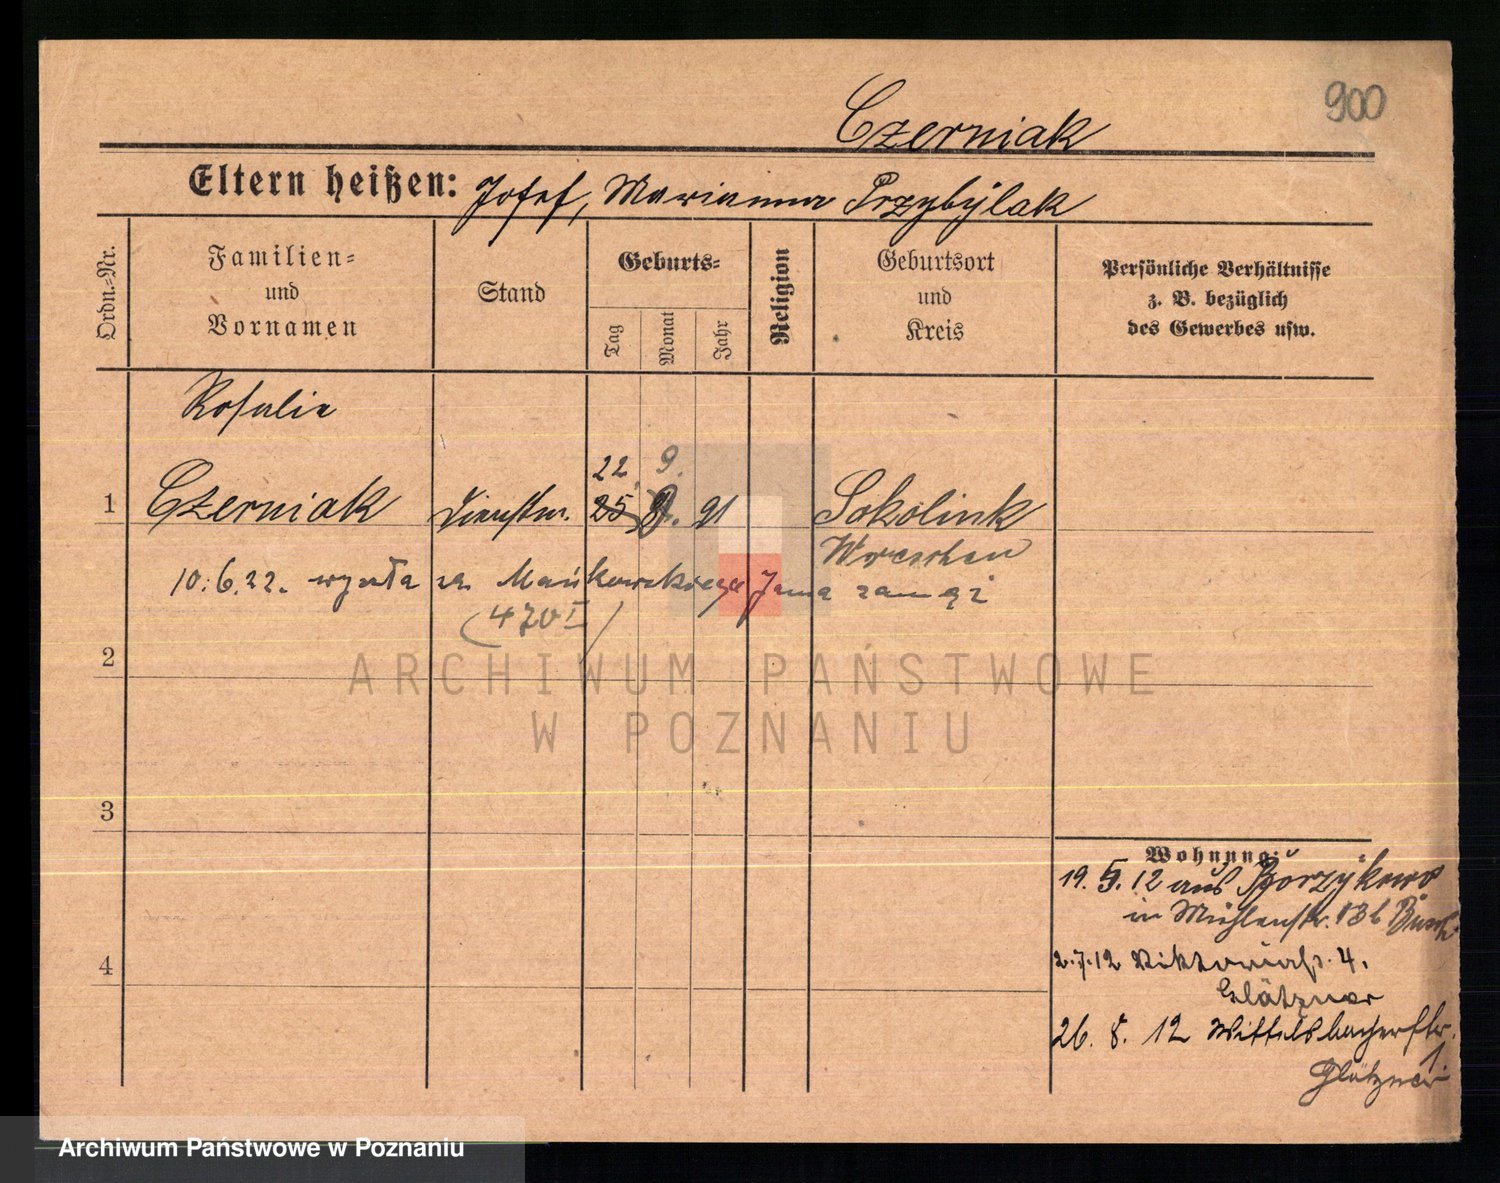 900
Czerniak
Eltern heißen: Josef, Marianna Przybylak
Ordn.-Nr.
Familien-
und
Vornamen
Stand
Geburts-
Tag
Monat
Jahr
Religion
Geburtsort
und
Kreis
Persönliche Verhältnisse
z. B. bezüglich
des Gewerbes usw.
Rosalie
22. 9.
1 Czerniak Dienstm. 25 8. 91 Sokolnik
Wreschen
10.6.22. wyszła za Mańkowskiego Jana zamąż
(470 I)
2
ARCHIWUM PAŃSTWOWE
W POZNANIU
3
Wohnung:
19. 5. 12 aus Borzykowo
in Mühlenstr. 13b
4
2.7.12 Viktoriastr. 4.
Glätzner
26. 8. 12 Wittelsbacherstr. 1
Glätzner
Archiwum Państwowe w Poznaniu